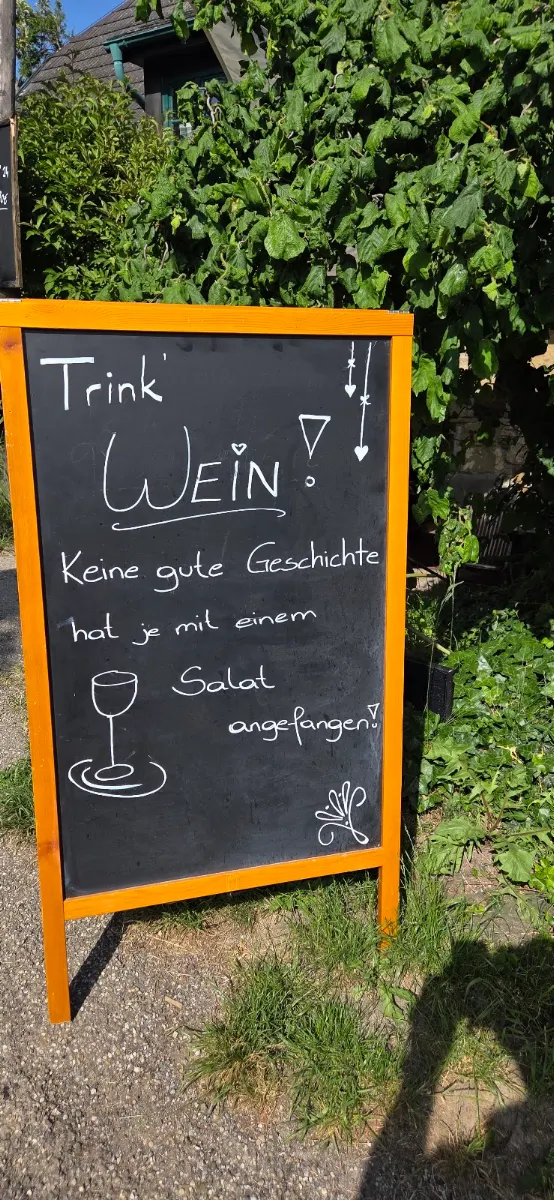 Trink'
WEIN!
Keine gute Geschichte
hat je mit einem
Salat
angefangen!